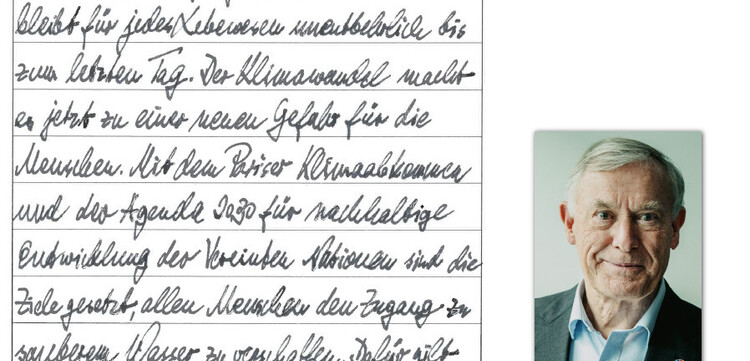 bleibt für jedes Lebewesen unentbehrlich bis
zum letzten Tag. Der Klimawandel macht
es jetzt zu einer neuen Gefahr für die
Menschen. Mit dem Pariser Klimaabkommen
und der Agenda 2030 für nachhaltige
Entwicklung der Vereinten Nationen sind die
Ziele gesetzt, allen Menschen den Zugang zu
sauberem Wasser zu verschaffen. Dafür gilt